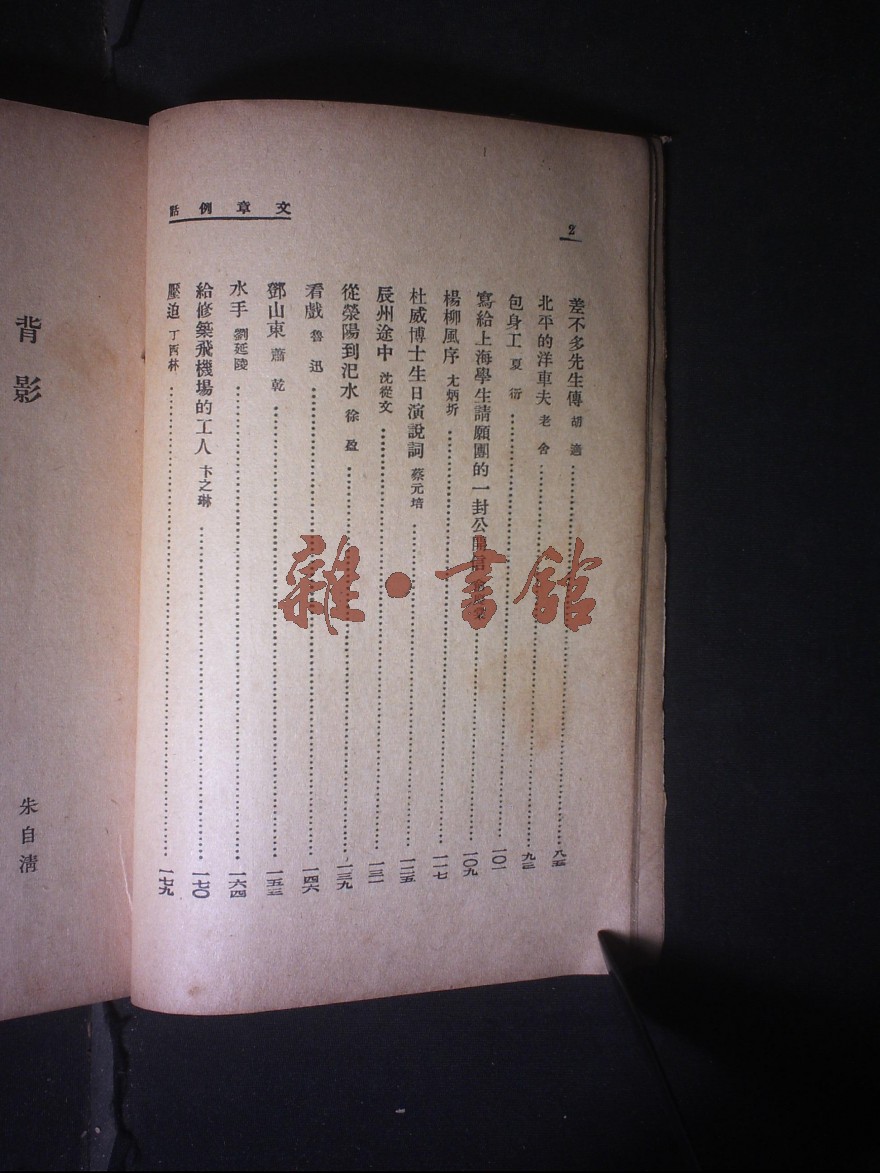 文章例話
2
差不多先生傳 胡適……八五
北平的洋車夫 老舍……九三
包身工 夏衍……一〇一
寫給上海學生請願團的一封公開信……一〇九
楊柳風序 尤炳圻……一一七
杜威博士生日演說詞 蔡元培……一二五
辰州途中 沈從文……一三一
從滎陽到汜水 徐盈……一三九
看戲 魯迅……一四六
鄧山東 蕭乾……一五三
水手 劉延陵……一六四
給修築飛機場的工人 卞之琳……一七〇
壓迫 丁西林……一七九
背影
朱自清
雜·書館